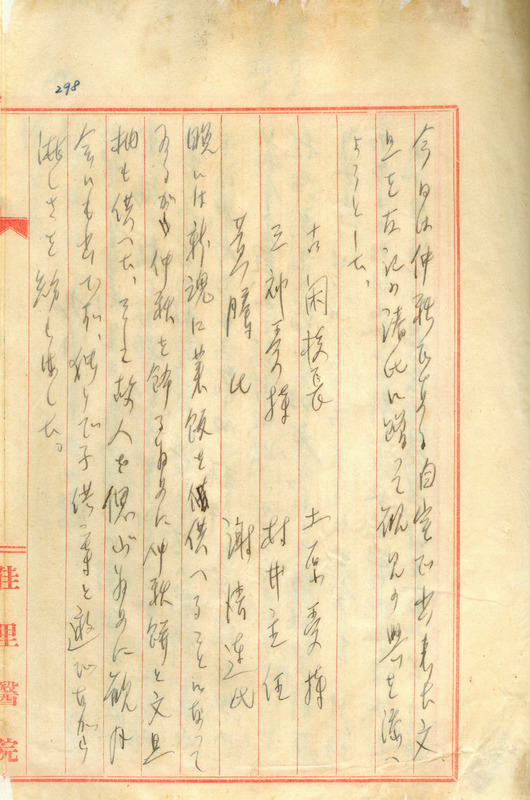 298
今日は仲秋である自宅で出来た文
旦を左記の諸氏に贈って観月の興を添へ
ようとした。
古閑校長 土原教授
三神教授 村井主任
黄騰氏 謝 氏
晩には新魂に菜飯を供へることになって
ゐるが仲秋を飾るために仲秋餅と文旦
柚も供へた、そして故人を偲ぶために観月
会にも出でず、独りで子供等と遊びながら
淋しさを紛らはした。
佳里醫院